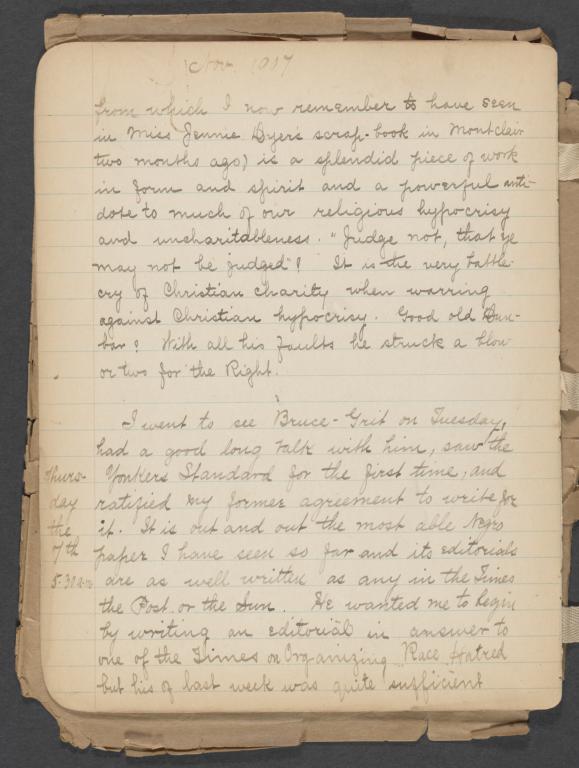 Nov. 1907
from which I now remember to have seen
in Miss Jennie Dyer's scrap-book in Montclair
two months ago) is a splendid piece of work
in form and spirit and a powerful anti-
dote to much of our religious hypocrisy
and unsharitableness. "Judge not, that ye
may not be judged"! It is the very battle-
cry of Christian charity when warring
against Christian hypocrisy. Good old Dun-
bar! With all his faults he struck a blow
or two for the Right.
I went to see Bruce-Grit on Tuesday,
had a good long talk with him, saw the
Yonkers Standard for the first time, and
ratified my former agreement to write for
it. It is out and out the most able Negro
paper I have seen so far and its editorials
are as well written as any in the Times
the Post or the Sun. He wanted me to begin
by writing an editorial in answer to
one of the Times on Organizing Race Hatred
but his of last week was quite sufficient
Thurs-
day
the
7th
5.30 a.m.